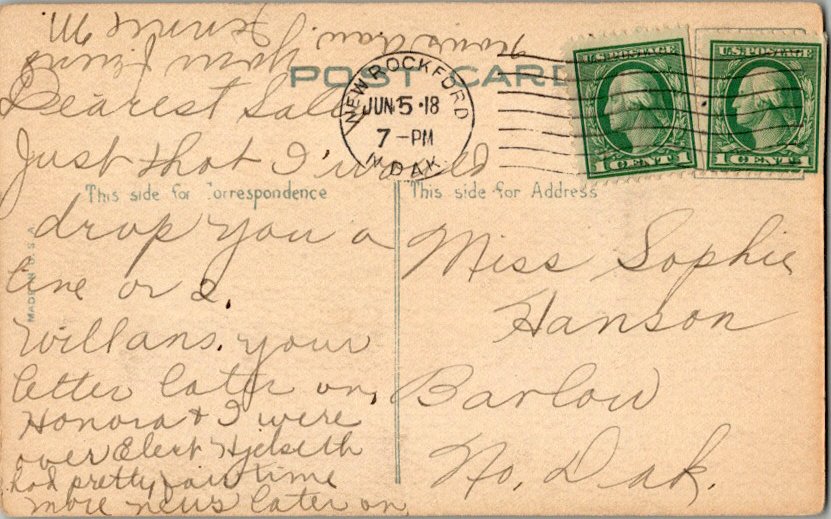 POST CARD
NEW ROCKFORD
JUN 5 '18
7 - PM
N. DAK.
U.S. POSTAGE
1 CENT 1
U.S. POSTAGE
1 CENT 1
Dearest
Just that I would
This side for Correspondence
drop you a
line or 2.
Will ans. your
letter later on.
Honora & I were
over Elert Hjelseth
had pretty fair time
more news later on
Your
This side for Address
Miss Sophie
Hanson
Barlow
No. Dak.
MADE IN U.S.A.